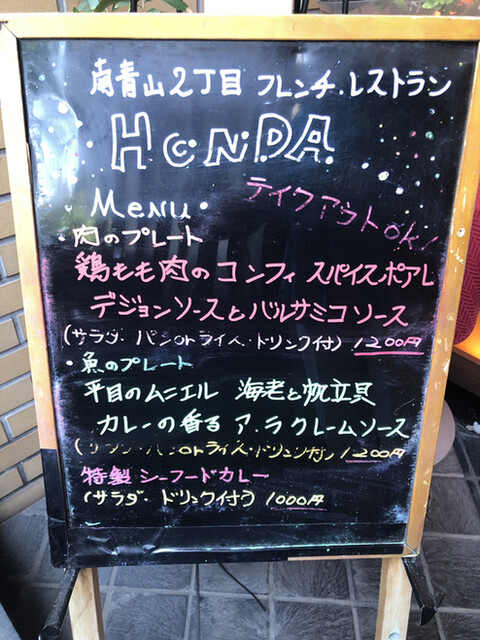 南青山2丁目 フレンチ・レストラン
HONDA
テイクアウトOK!
Menu・
・肉のプレート
鶏もも肉のコンフィ スパイスポアレ
デジョンソースとバルサミコソース
(サラダ・パンorライス・ドリンク付) 1200円
・魚のプレート
平目のムニエル 海老と帆立貝
カレーの香る ア・ラクレームソース
(サラダ・パンorライス・ドリンク付) 1200円
特製 シーフードカレー
(サラダ・ドリンク付) 1000円